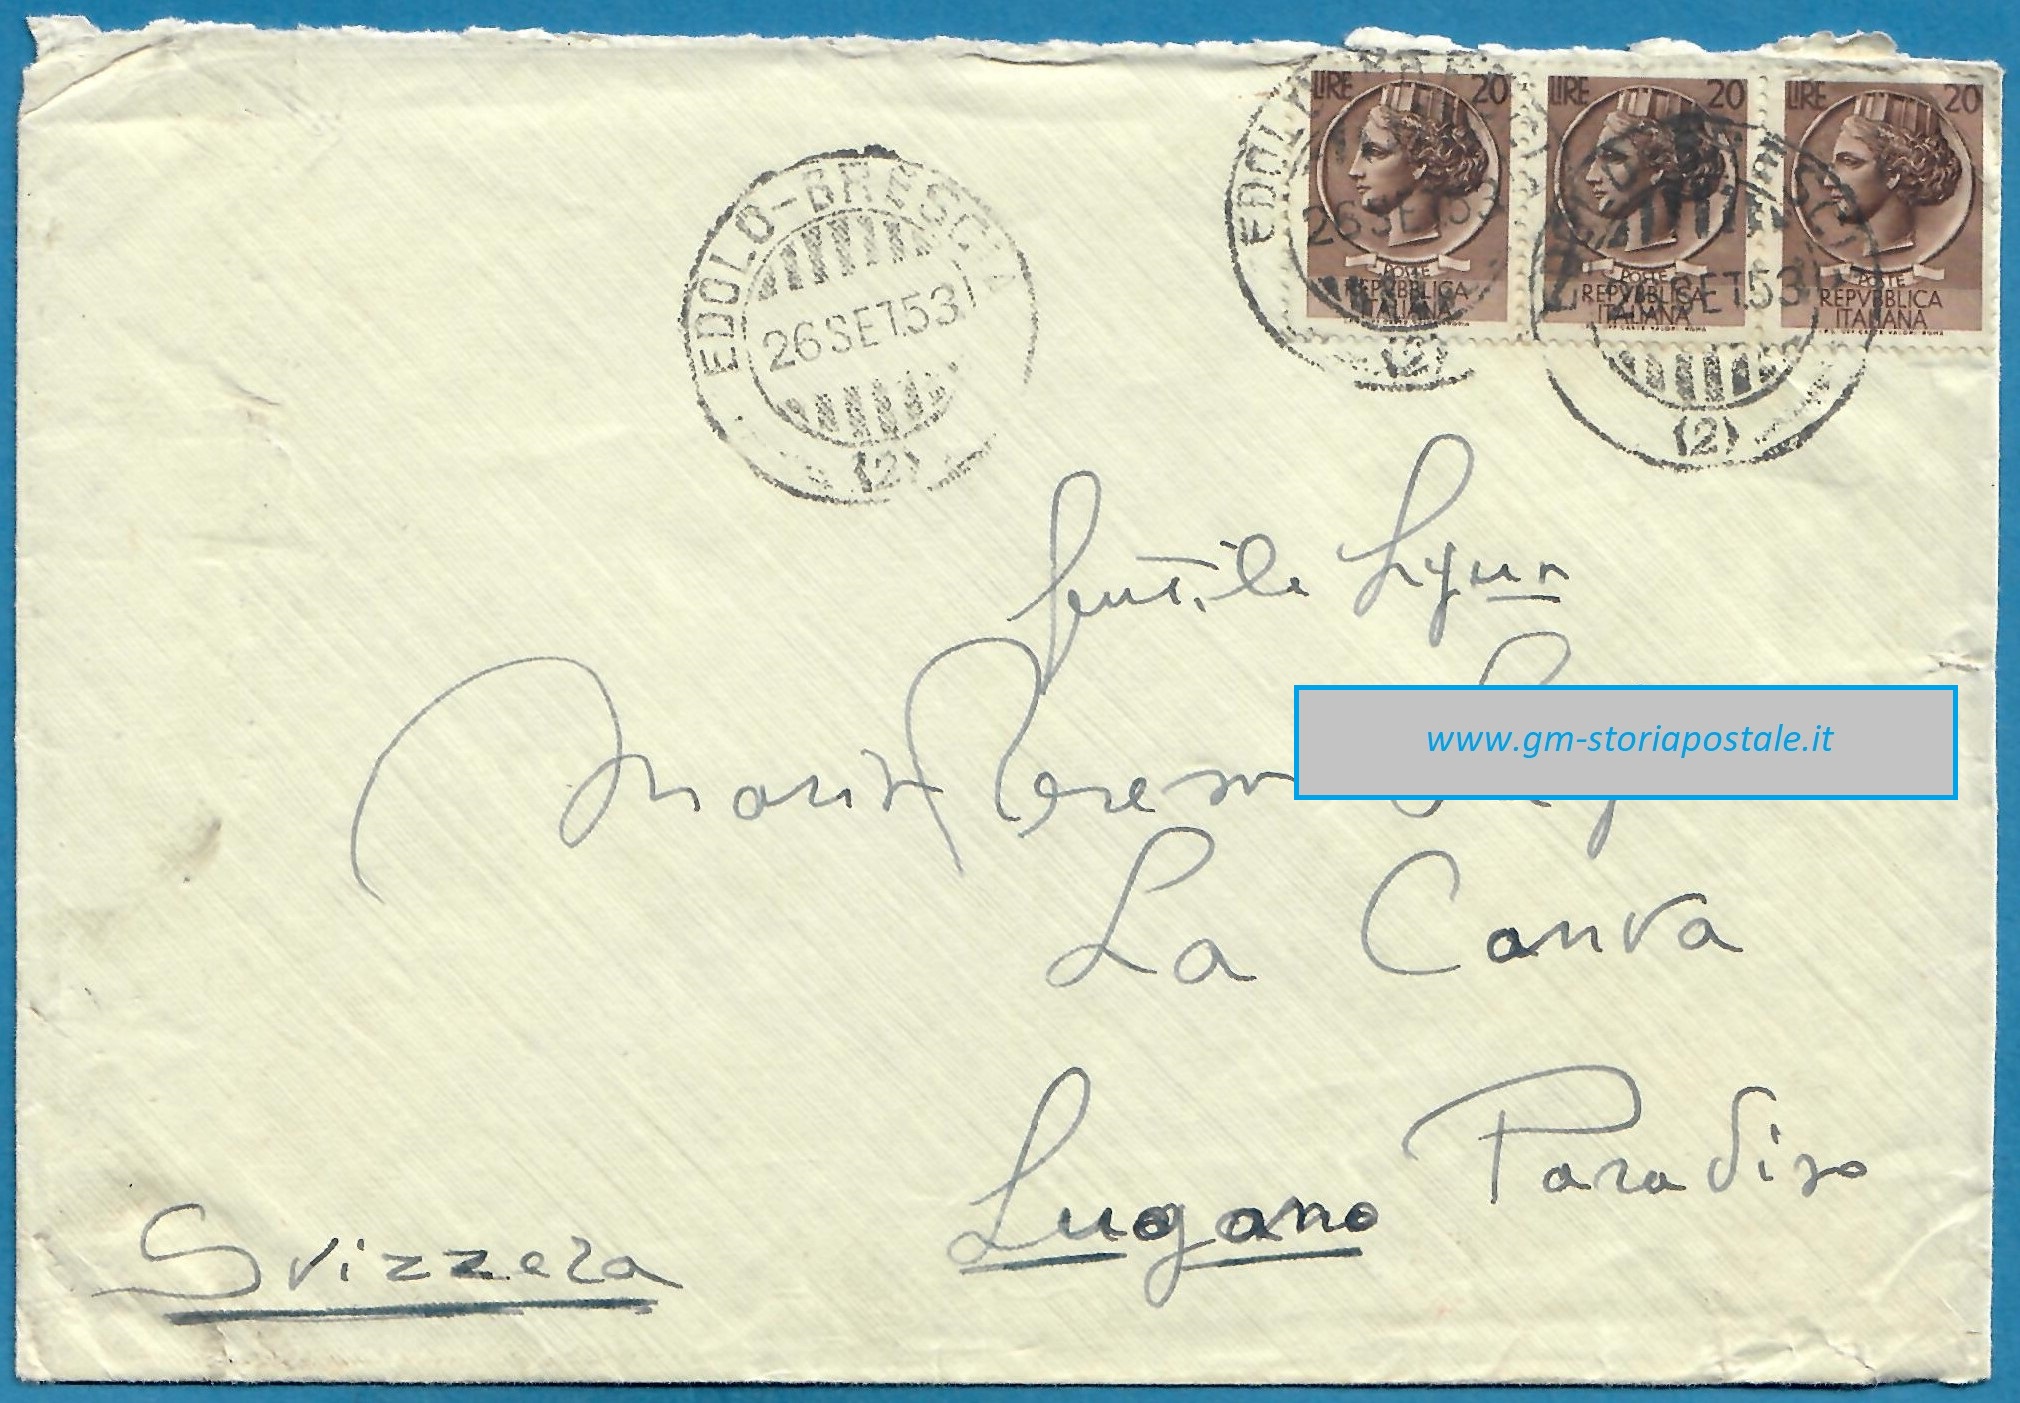 LIRE 20 LIRE 20 LIRE 20
POSTE POSTE POSTE
REPVBBLICA REPVBBLICA REPVBBLICA
ITALIANA ITALIANA ITALIANA
EDOLO-BRESCIA
26 SET.53
(2)
EDOLO
26 SET.53
(2)
SET.53
(2)
Gentile
Maria Teresa
www.gm-storiapostale.it
La Canva
Lugano Paradiso
Svizzera